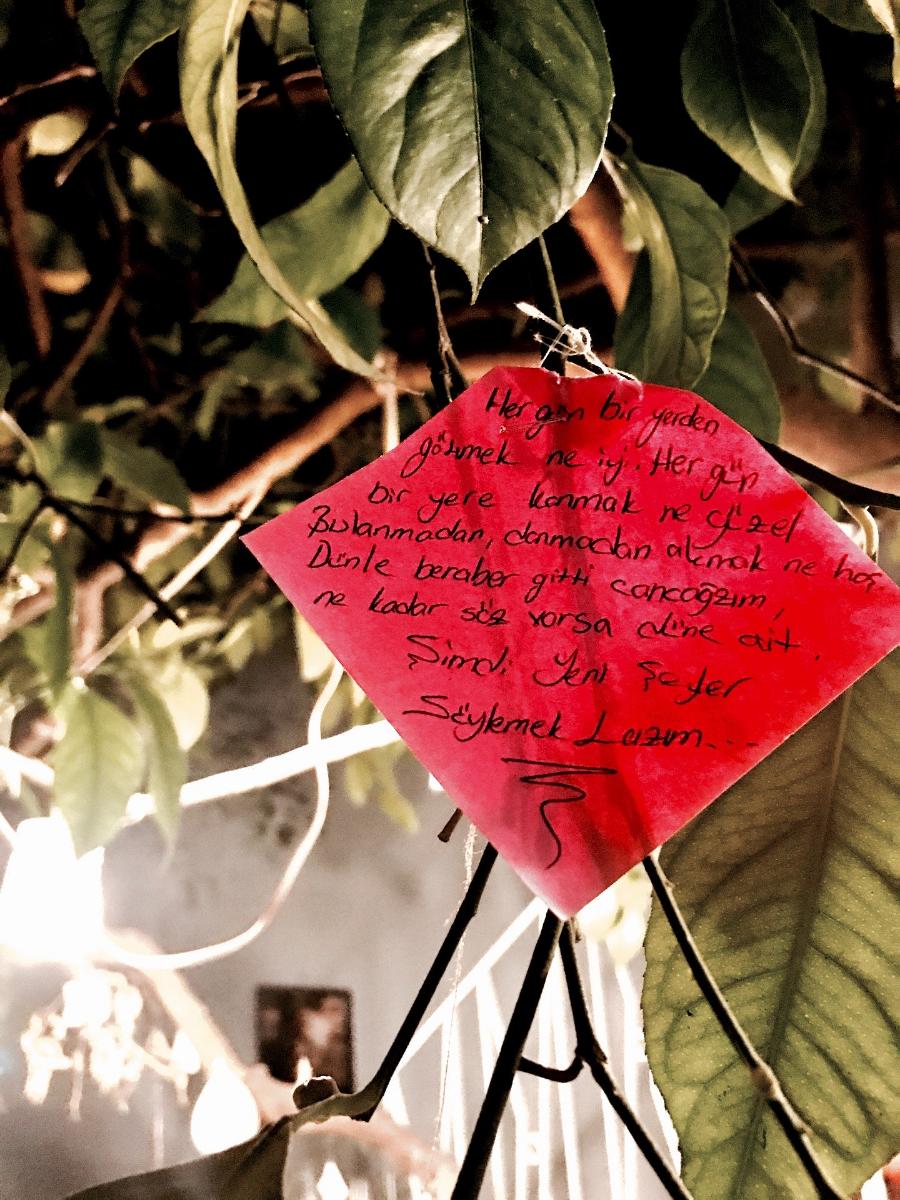 Her gün bir yerden
göçmek ne iyi. Her gün
bir yere konmak ne güzel
Bulanmadan, donmadan akmak ne hoş,
Dünle beraber gitti cancağzım,
ne kadar söz varsa düne ait.
Şimdi Yeni Şeyler
Söylemek Lazım...